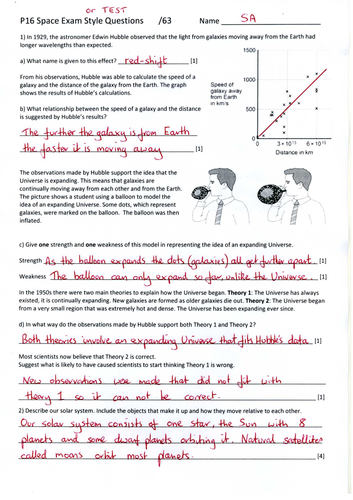 or TEST
P16 Space Exam Style Questions /63 Name SA
1) In 1929, the astronomer Edwin Hubble observed that the light from galaxies moving away from the Earth had
longer wavelengths than expected.
a) What name is given to this effect? red-shift [1]
From his observations, Hubble was able to calculate the speed of a
galaxy and the distance of the galaxy from the Earth. The graph
shows the results of Hubble's calculations.
b) What relationship between the speed of a galaxy and the distance
is suggested by Hubble's results?
The further the galaxy is from Earth
the faster it is moving away [1]
1500
1000
500
0
Speed of
galaxy away
from Earth
in km/s
0 3×10¹⁹ 6×10¹⁹
Distance in km
The observations made by Hubble support the idea that the
Universe is expanding. This means that galaxies are
continually moving away from each other and from the Earth.
The picture shows a student using a balloon to model the
idea of an expanding Universe. Some dots, which represent
galaxies, were marked on the balloon. The balloon was then
inflated.
c) Give one strength and one weakness of this model in representing the idea of an expanding Universe.
Strength As the balloon expands the dots (galaxies) all get further apart [1]
Weakness The balloon can only expand so far, unlike the Universe. [1]
In the 1950s there were two main theories to explain how the Universe began. Theory 1: The Universe has always
existed, it is continually expanding. New galaxies are formed as older galaxies die out. Theory 2: The Universe began
from a very small region that was extremely hot and dense. The Universe has been expanding ever since.
d) In what way do the observations made by Hubble support both Theory 1 and Theory 2?
Both theories involve an expanding Universe that fits Hubble's data [1]
Most scientists now believe that Theory 2 is correct.
Suggest what is likely to have caused scientists to start thinking Theory 1 is wrong.
New observations were made that did not fit with
theory 1 so it can not be correct. [1]
2) Describe our solar system. Include the objects that make it up and how they move relative to each other.
Our solar system consists of one star, the Sun with 8
planets and some dwarf planets orbiting it. Natural satellites
called moons orbit most planets. [4]